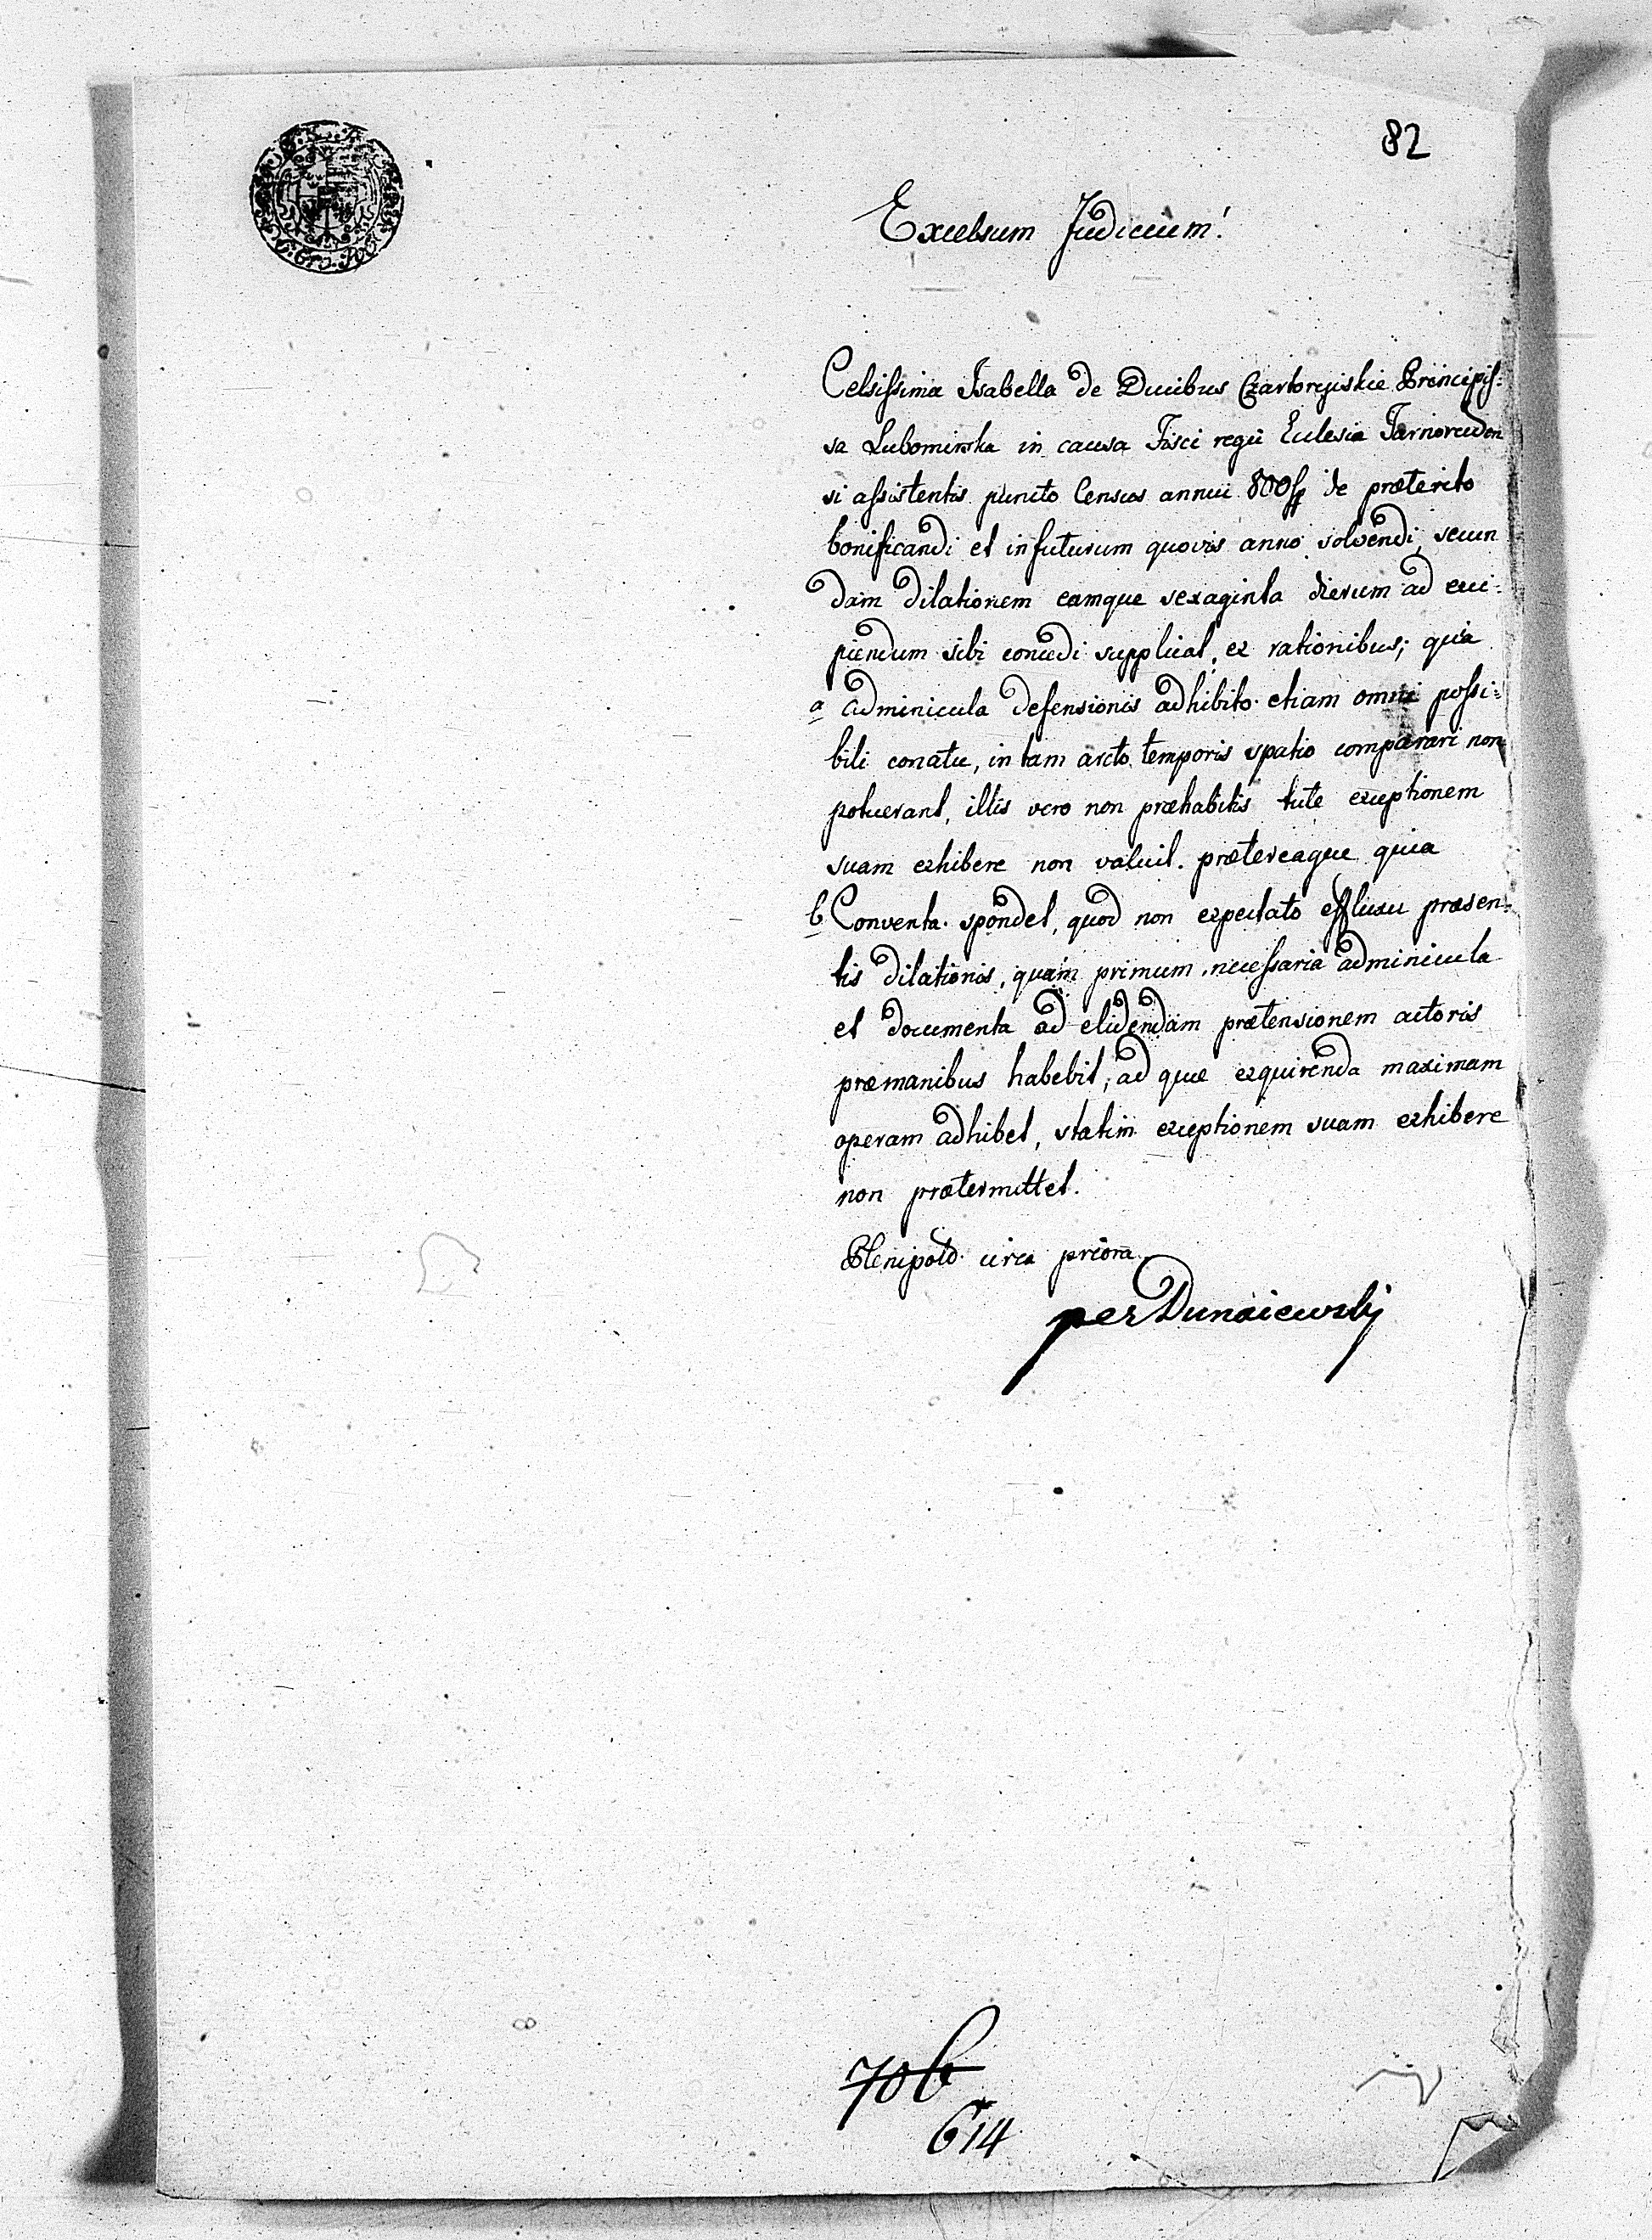 82
Excelsum Judicium!
Celsissima Isabella de Ducibus Czartoryiskie Principis:
sa Lubomirska in causa Fisci regii Eclesiæ Tarnoruden
si assistentis puncto Census annui 800 de præterito
bonificandi et in futurum quovis anno solvendi, secun
dam dilationem eamque sexaginta dierum ad exci:
piendum sibi concedi supplicat, ex rationibus; quia
a adminicula defensionis adhibito etiam omni possi:
bili conatu, in tam arcto temporis spatio comparari non
potuerant, illis vero non præhabitis tute exceptionem
suam exhibere non valuit. prætereaque quia
b Conventa spondet, quod non expectato effluxu præsen:
tis dilationis, quam primum necessaria adminicula
et documenta ad elidendam prætensionem actoris
præmanibus habebit, ad quæ exquirenda maximam
operam adhibet, statim exceptionem suam exhibere
non prætermittet.
Plenipotd. circa priora
per Dunaiewskj
706
614